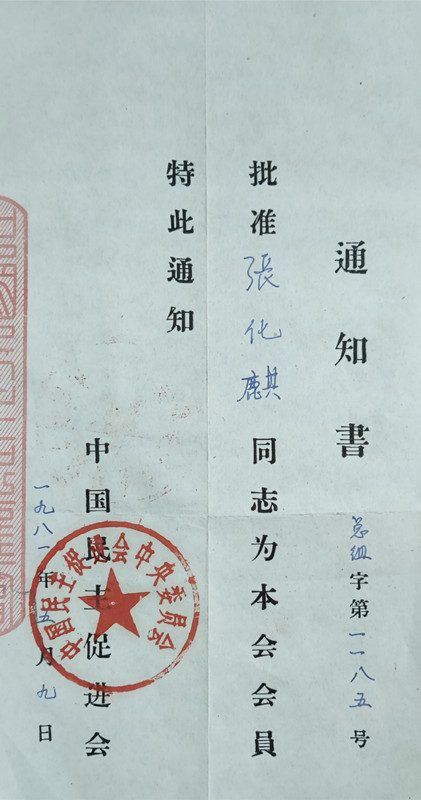 通知書
总组字第一一八五号
批准張化麒同志为本会会員
特此通知
中国民主促进会
一九八一年五月九日
中国民主促进会中央委员会